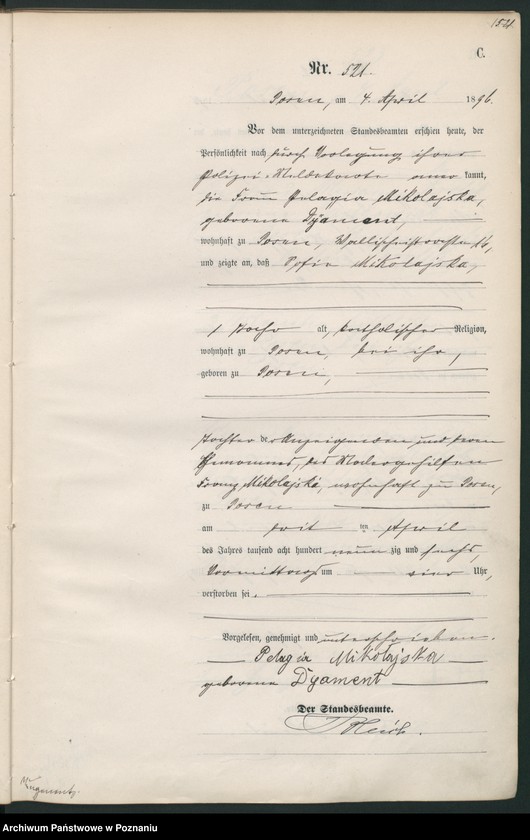 1521
C.
Nr. 521.
Posen, am 4. April 1896.
Vor dem unterzeichneten Standesbeamten erschien heute, der
Persönlichkeit nach durch Vorlegung ihrer
Polizei-Meldekarte anerkannt,
die Frau Pelagia Mikolajska,
geborene Dyament,
wohnhaft zu Posen, Wallischeistraße
und zeigte an, daß Sofia Mikolajska,
1 Jahr alt, katholischer Religion,
wohnhaft zu Posen, bei ihr,
geboren zu Posen,
Tochter der Anzeigenden und deren
Ehemannes, des
Franz Mikolajski, wohnhaft zu Posen,
zu Posen
am dritten April
des Jahres tausend acht hundert neunzig und sechs,
Vormittags um vier Uhr,
verstorben sei.
Vorgelesen, genehmigt und unterschrieben.
Pelagia Mikołajska
geborene Dyament
Der Standesbeamte.
Archiwum Państwowe w Poznaniu